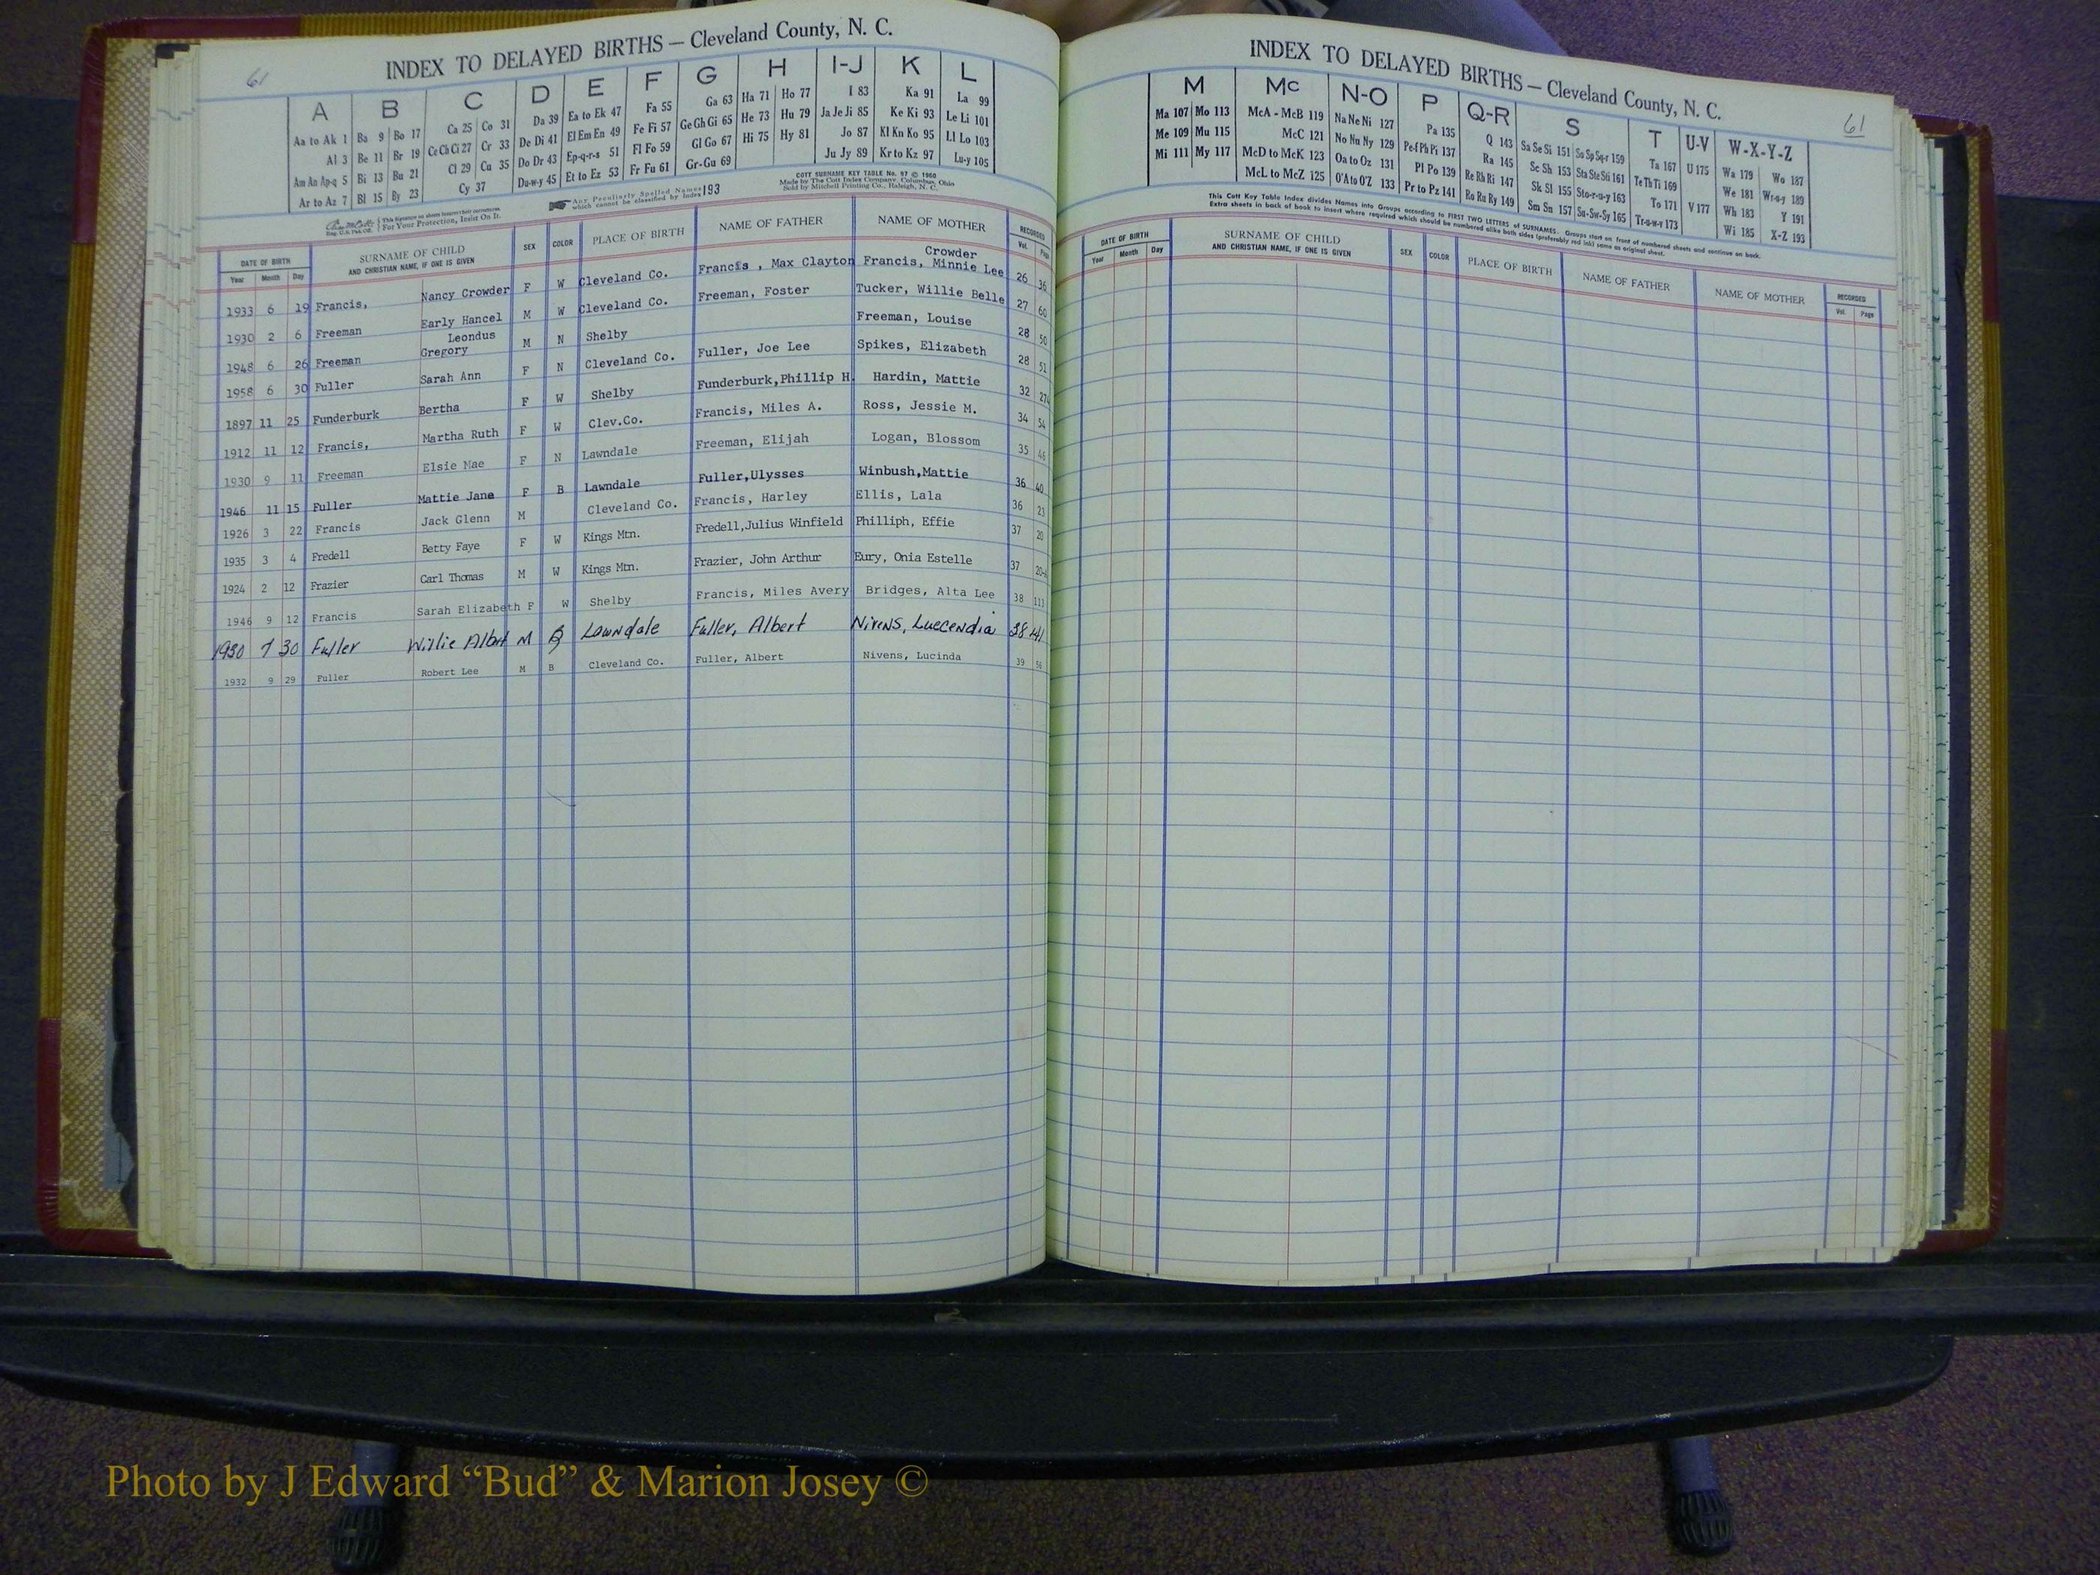 61
INDEX TO DELAYED BIRTHS — Cleveland County, N. C.
A B C D E F G H I-J K L
Aa to Ak 1 Ba 9 Bo 17 Ca 25 Co 31 Da 39 Ea to Ek 47 Fa 55 Ga 63 Ha 71 Ho 77 I 83 Ka 91 La 99
Al 3 Be 11 Br 19 Ce Ch Ci 27 Cr 33 De Di 41 El Em En 49 Fe Fi 57 Ge Gh Gi 65 He 73 Hu 79 Ja Je Ji 85 Ke Ki 93 Le Li 101
Am An Ap-q 5 Bi 13 Bu 21 Cl 29 Cu 35 Do Dr 43 Ep-q-r-s 51 Fl Fo 59 Gl Go 67 Hi 75 Hy 81 Jo 87 Kl Kn Ko 95 Ll Lo 103
Ar to Az 7 Bl 15 By 23 Cy 37 Du-w-y 45 Et to Ez 53 Fr Fu 61 Gr-Gu 69 Ju Jy 89 Kr to Kz 97 Lu-y 105
This Signature on sheets insures their correctness.
Reg. U.S. Pat. Off. For Your Protection, Insist On It.
Any Peculiarly Spelled Names
which cannot be classified by Index 193
COTT SURNAME KEY TABLE No. 97 © 1960
Made by The Cott Index Company, Columbus, Ohio
Sold by Mitchell Printing Co., Raleigh, N. C.
DATE OF BIRTH SURNAME OF CHILD SEX COLOR PLACE OF BIRTH NAME OF FATHER NAME OF MOTHER RECORDED
Year Month Day AND CHRISTIAN NAME, IF ONE IS GIVEN Vol. Page
Crowder
1933 6 19 Francis, Nancy Crowder F W Cleveland Co. Francis , Max Clayton Francis, Minnie Lee 26 36
1930 2 6 Freeman Early Hancel M W Cleveland Co. Freeman, Foster Tucker, Willie Belle 27 60
Leondus
1948 6 26 Freeman Gregory M N Shelby Freeman, Louise 28 50
1958 6 30 Fuller Sarah Ann F N Cleveland Co. Fuller, Joe Lee Spikes, Elizabeth 28 51
1897 11 25 Funderburk Bertha F W Shelby Funderburk,Phillip H. Hardin, Mattie 32 274
1912 11 12 Francis, Martha Ruth F W Clev.Co. Francis, Miles A. Ross, Jessie M. 34 54
1930 9 11 Freeman Elsie Mae F N Lawndale Freeman, Elijah Logan, Blossom 35 46
1946 11 15 Fuller Mattie Jane F B Lawndale Fuller,Ulysses Winbush,Mattie 36 40
1926 3 22 Francis Jack Glenn M Cleveland Co. Francis, Harley Ellis, Lala 36 23
1935 3 4 Fredell Betty Faye F W Kings Mtn. Fredell,Julius Winfield Philliph, Effie 37 20
1924 2 12 Frazier Carl Thomas M W Kings Mtn. Frazier, John Arthur Eury, Onia Estelle 37
1946 9 12 Francis Sarah Elizabeth F W Shelby Francis, Miles Avery Bridges, Alta Lee 38 113
1930 7 30 Fuller Willie Albert M B Lawndale Fuller, Albert Nivens, Luecendia 38 141
1932 9 29 Fuller Robert Lee M B Cleveland Co. Fuller, Albert Nivens, Lucinda 39 56
INDEX TO DELAYED BIRTHS — Cleveland County, N. C.
61
M Mc N-O P Q-R S T U-V W-X-Y-Z
Ma 107 Mo 113 McA - McB 119 Na Ne Ni 127 Pa 135 Q 143 Sa Se Si 151 So Sp Sq-r 159 Ta 167 U 175 Wa 179 Wo 187
Me 109 Mu 115 McC 121 No Nu Ny 129 Pe-f Ph Pi 137 Ra 145 Sc Sh 153 Sta Ste Sti 161 Te Th Ti 169 We 181 Wr-u-y 189
Mi 111 My 117 McD to McK 123 Oa to Oz 131 Pl Po 139 Re Rh Ri 147 Sk Sl 155 Sto-r-u-y 163 To 171 V 177 Wh 183 Y 191
McL to McZ 125 O'A to O'Z 133 Pr to Pz 141 Ro Ru Ry 149 Sm Sn 157 Su-Sw-Sy 165 Tr-u-w-y 173 Wi 185 X-Z 193
This Cott Key Table Index divides Names into Groups according to FIRST TWO LETTERS of SURNAMES. Groups start on front of numbered sheets and continue on back.
Extra sheets in back of book to insert where required which should be numbered alike both sides (preferably red ink) same as original sheet.
DATE OF BIRTH SURNAME OF CHILD SEX COLOR PLACE OF BIRTH NAME OF FATHER NAME OF MOTHER RECORDED
Year Month Day AND CHRISTIAN NAME, IF ONE IS GIVEN Vol. Page
Photo by J Edward “Bud” & Marion Josey ©